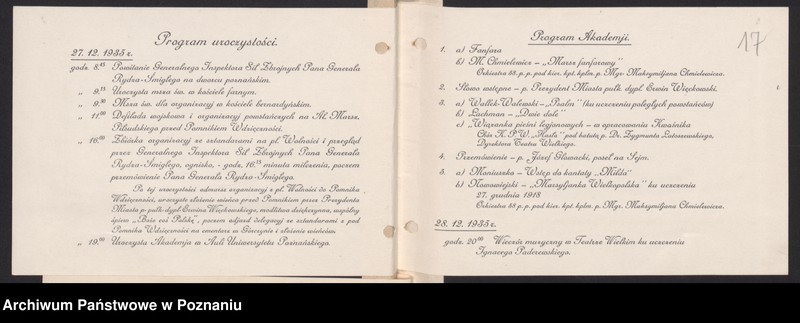 Program uroczystości.
27. 12. 1935 r.
godz. 8.45 Powitanie Generalnego Inspektora Sił Zbrojnych Pana Generała
Rydza-Śmigłego na dworcu poznańskim.
„ 9.15 Uroczysta msza św. w kościele farnym.
„ 9.30 Msza św. dla organizacyj w kościele bernardyńskim.
„ 11.00 Defilada wojskowa i organizacyj powstańczych na Al. Marsz.
Piłsudskiego przed Pomnikiem Wdzięczności.
„ 16.00 Zbiórka organizacyj ze sztandarami na pl. Wolności i przegląd
przez Generalnego Inspektora Sił Zbrojnych Pana Generała
Rydza-Śmigłego, ognisko, - godz. 16.15 minuta milczenia, poczem
przemówienie Pana Generała Rydza-Śmigłego.
Po tej uroczystości odmarsz organizacyj z pl. Wolności do Pomnika
Wdzięczności, uroczyste złożenie wieńca przed Pomnikiem przez Prezydenta
Miasta p. pułk. dypl. Erwina Więckowskiego, modlitwa dziękczynna, wspólny
śpiew „Boże coś Polskę”, poczem odjazd delegacyj ze sztandarami z pod
Pomnika Wdzięczności na cmentarz w Górczynie i złożenie wieńców.
„ 19.00 Uroczysta Akademja w Auli Uniwersytetu Poznańskiego.
Program Akademji.
17
1. a) Fanfara
b) M. Chmielewicz - „Marsz fanfarowy”
Orkiestra 58. p. p. pod kier. kpt. kplm. p. Mgr. Maksymiljana Chmielewicza.
2. Słowo wstępne - p. Prezydent Miasta pułk. dypl. Erwin Więckowski.
3. a) Wallek-Walewski - „Psalm” (ku uczczeniu poległych powstańców)
b) Lachman - „Dwie dole”
c) „Wiązanka pieśni legjonowych - w opracowaniu Kwaśnika
Chór K. P. W. „Hasło” pod batutą p. Dr. Zygmunta Latoszewskiego,
Dyrektora Teatru Wielkiego.
4. Przemówienie - p. Józef Głowacki, poseł na Sejm.
5. a) Moniuszko - Wstęp do kantaty „Milda”
b) Nowowiejski - „Marsyljanka Wielkopolska” ku uczczeniu
27. grudnia 1918
Orkiestra 58. p. p. pod kier. kpt. kplm. p. Mgr. Maksymiljana Chmielewicza.
28. 12. 1935 r.
godz. 20.00 Wieczór muzyczny w Teatrze Wielkim ku uczczeniu
Ignacego Paderewskiego.
Archiwum Państwowe w Poznaniu